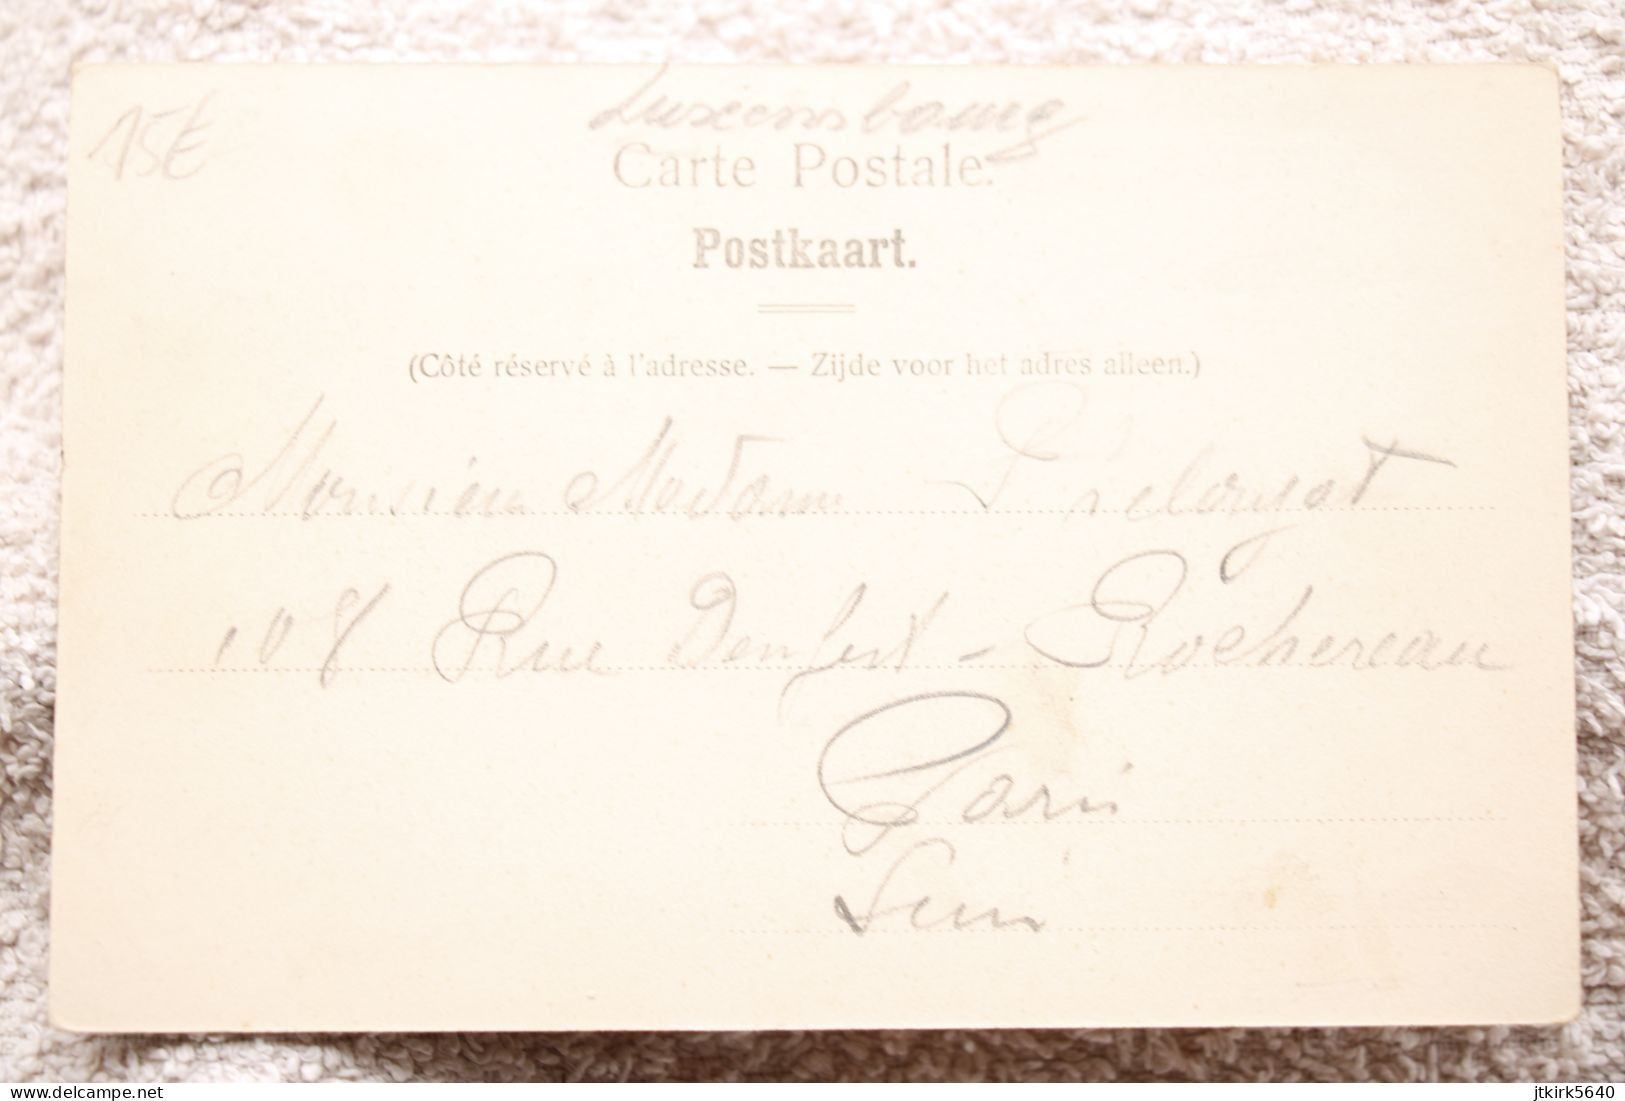 15€
Luxembourg
Carte Postale.
Postkaart.
(Côté réservé à l'adresse. — Zijde voor het adres alleen.)
Monsieur Madame
108 Rue Denfert - Rochereau
Paris
Seine
delcampe.net
jtkirk5640